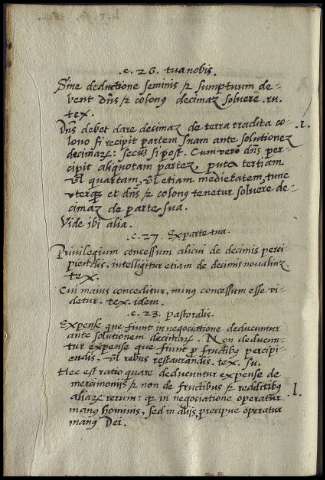 .c. 26. tua nobis.
Sine deductione seminis et sumptuum de-
bent dns et colonus decimaz solvere. tu.
tex.
Dns debet dare decimaz de terra tradita co-
lono si recipit partem suam ante solutionez
decimaz: secus si post. Cum vero dns per-
cipit aliquotam partez puta tertiam
vel quartam, vel etiam medietatem, tunc
uterque et dns et colonus tenetur solvere de-
cimaz de parte sua.
Vide ibi alia.
.c. 27. Ex parte tua.
Privilegium concessum alicui de decimis perci-
piendis, intelligitur etiam de decimis novalium.
tex.
Cui maius conceditur, minus concessum esse vi-
detur. tex. idem.
.c. 28. pastoralis.
Expense que fiunt in negociatione deducuntur
ante solutionem decimaz. Non deducun-
tur expense que fiunt pro fructibus percipi-
endis. vel rebus restaurandis. tex.
Hec est ratio quare deducuntur expense de
mercimoniis et non de fructibus et redditibus
aliaz rerum: quia in negociatione operatur
manus hominis, sed in aliis precipue operatur
manus Dei.